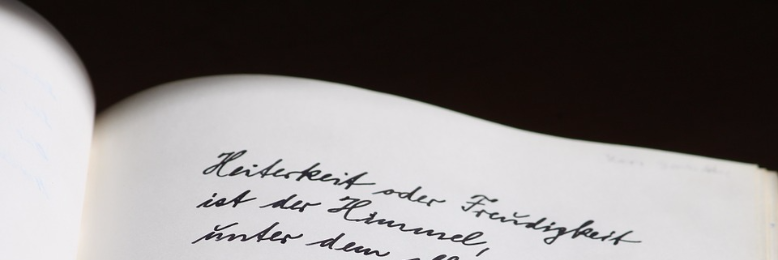 Heiterkeit oder Freudigkeit
ist der Himmel,
unter dem